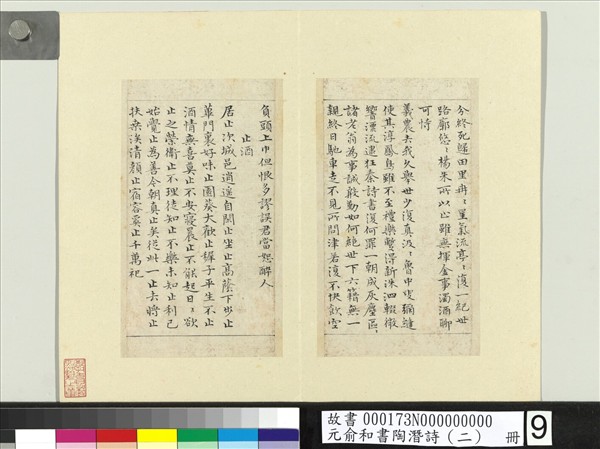 分終死歸田里冉〻星氣流亭〻復一紀世
路廓悠〻楊朱所以止雖無揮金事濁酒聊
可恃
羲農去我久舉世少復真汲〻魯中叟彌縫
使其淳鳳鳥雖不至禮樂暫得新洙泗輟微
響漂流逮狂秦詩書復何罪一朝成灰塵區〻
諸老翁為事誠殷勤如何絕世下六籍無一
親終日馳車走不見所問津若復不快飲空
負頭上巾但恨多謬誤君當恕醉人
止酒
居止次城邑逍遙自閒止坐止高蔭下步止
蓽門裏好味止園葵大歡止稚子平生不止
酒情無喜莫止不安寢晨止不能起日〻欲
止之營衛止不理徒知止不樂未知止利己
始覺止為善今朝真止矣從此一止去將止
扶桑涘清顏止宿容奚止千萬祀
故書 000173N000000000
元俞和書陶潛詩（二） 冊
9